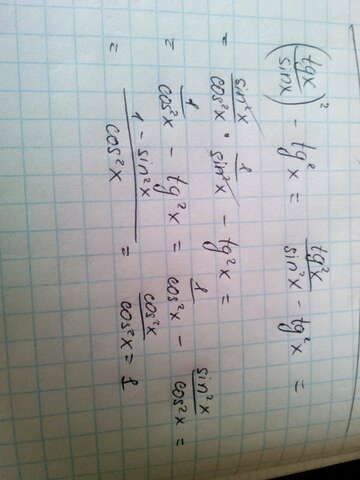 (tgx/sinx)² - tg²x = tg²x/sin²x - tg²x =
= sin²x/cos²x · 1/sin²x - tg²x =
= 1/cos²x - tg²x = 1/cos²x - sin²x/cos²x =
= 1 - sin²x/cos²x = cos²x/cos²x = 1